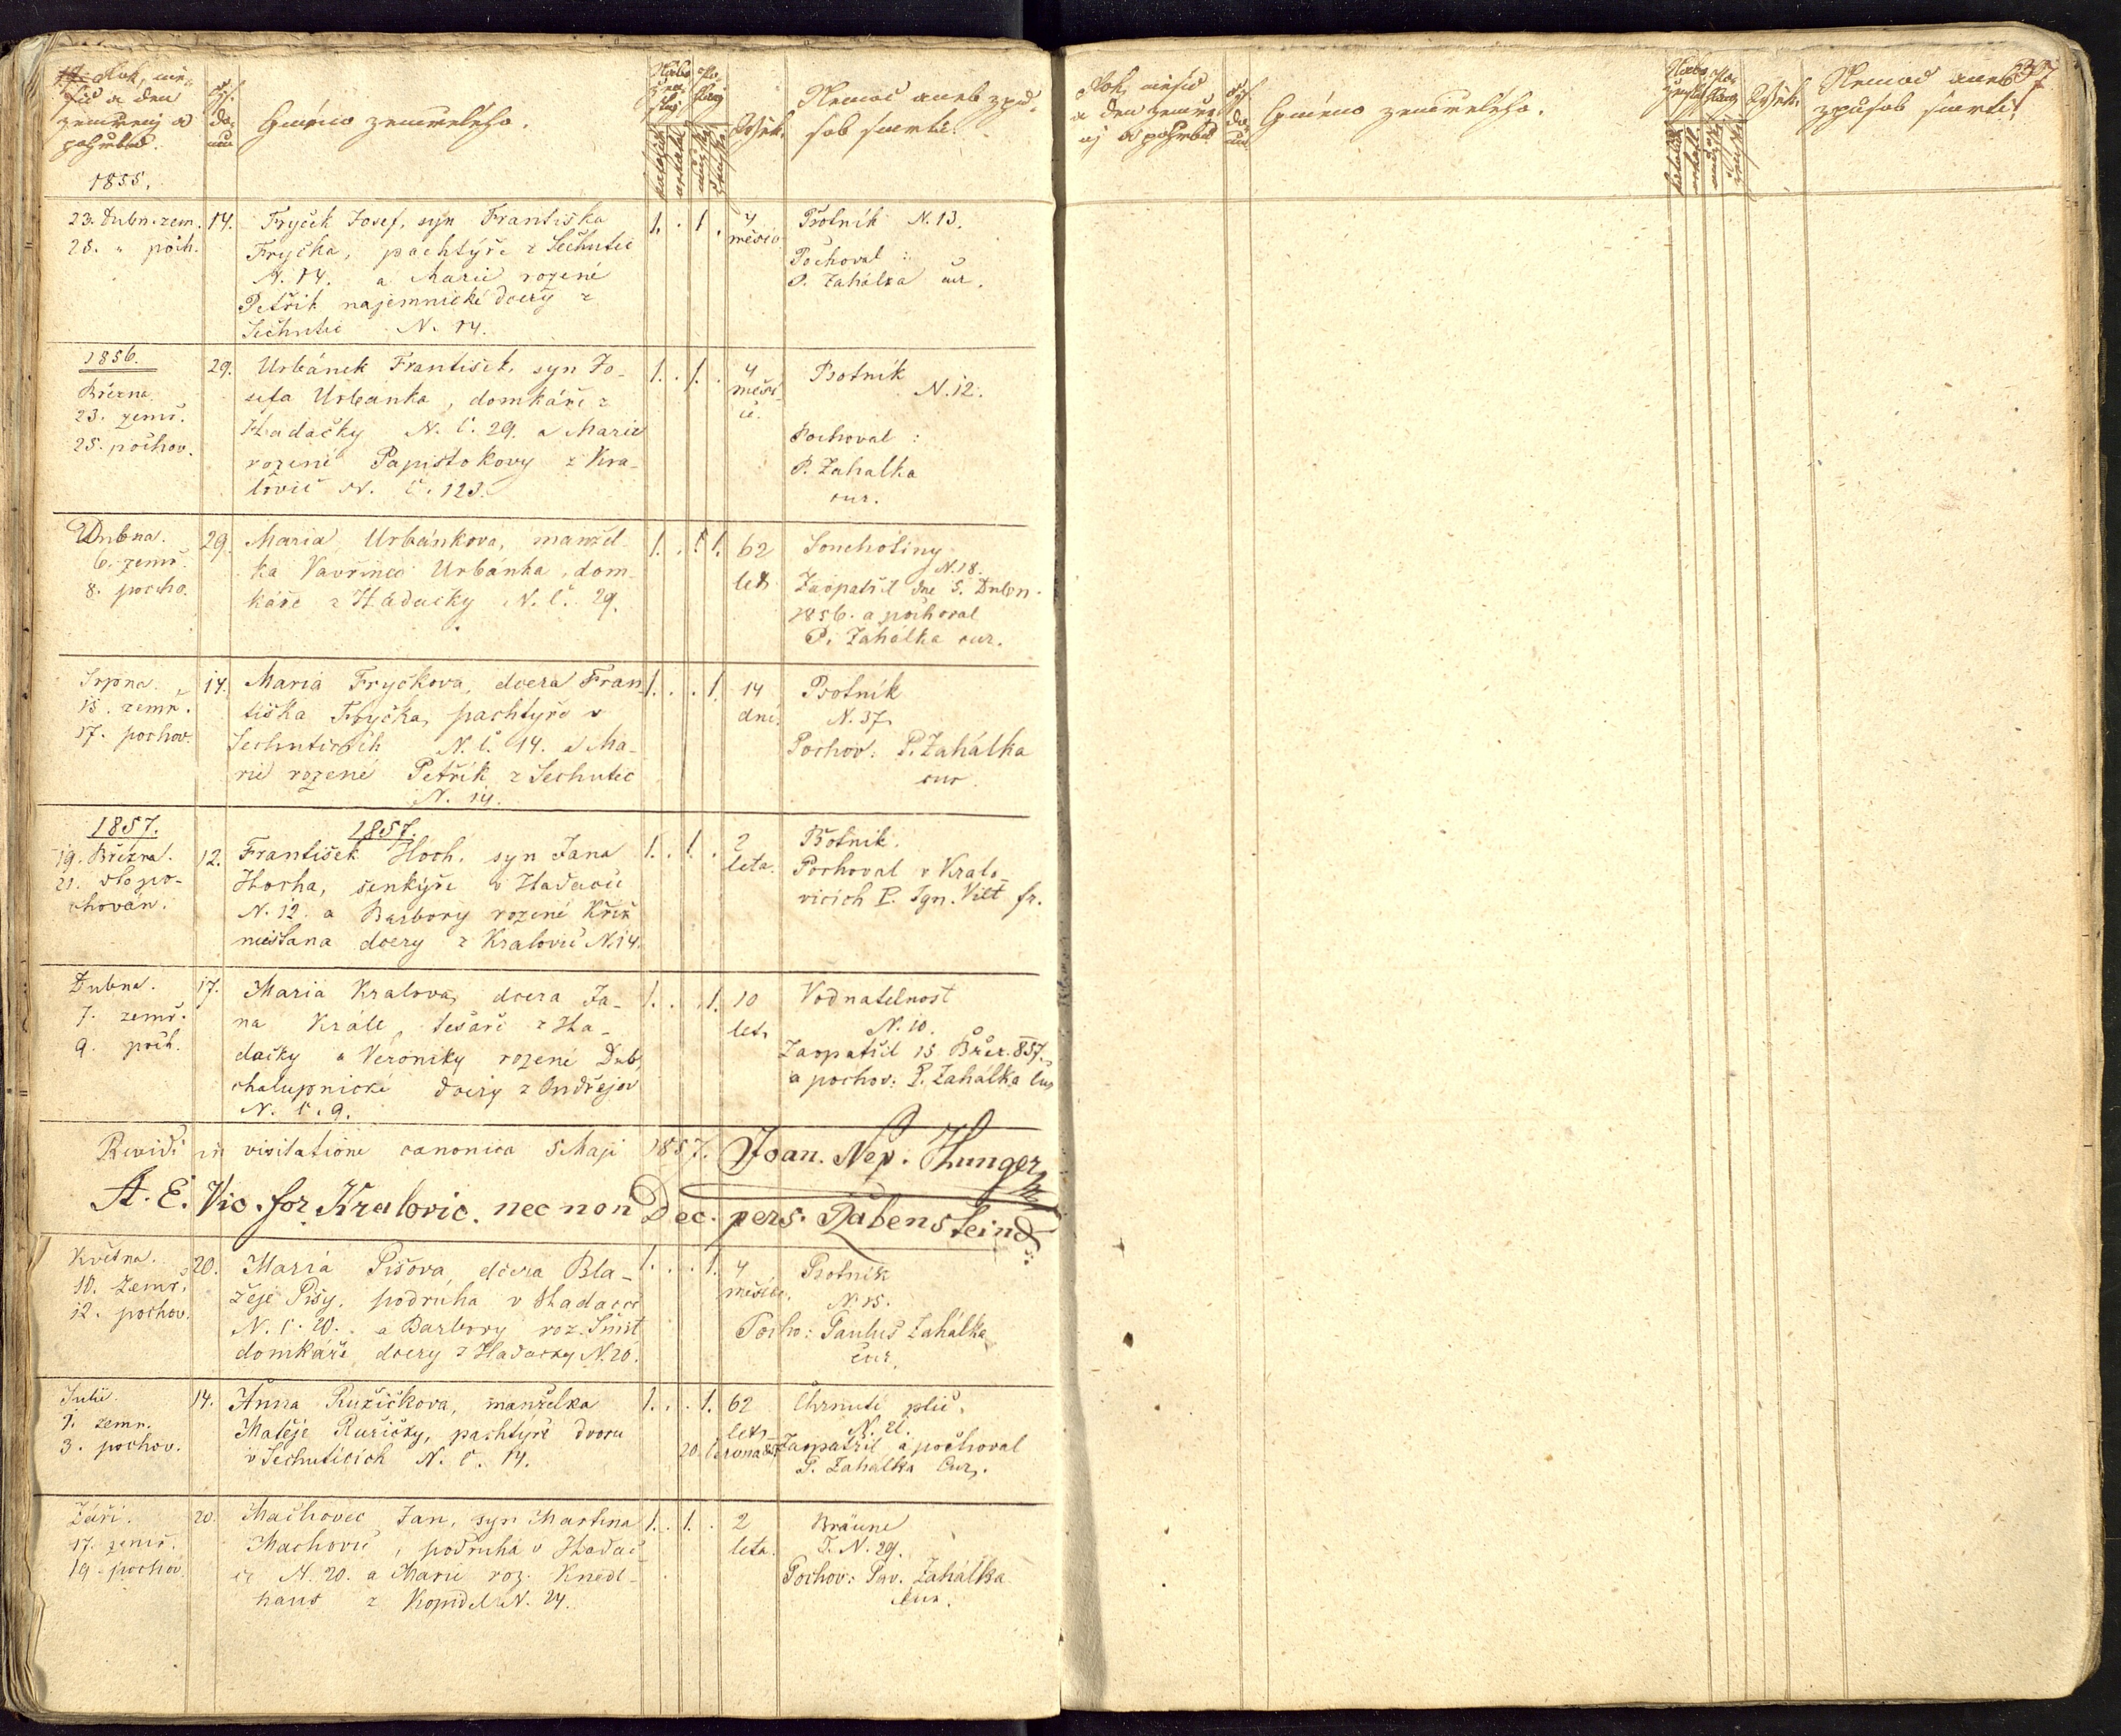 Rok, mě-
síc a den
zemření a
pohřbu.
1855.
Čís.
do-
mu
Gméno zemřelého.
Nábo-
žen-
ství
katolické
Po-
hlaví
mužské
ženské
Wěk.
Nemoc aneb způ-
sob smrti.
23. Dubn. zem.
25. " poch.
14.
Fryček Josef, syn Františka
Fryčka, pachtýře z Sechutic
N. 14. a Marie rozené
Petřík najemnické dcery z
Sechutic N. 14.
1. . 1 .
4
měsíc.
Psotník N. 13.
Pochoval :
P. Zahálka cur.
1856.
Března.
23. zemř.
25. pochov.
29.
Urbánek František, syn Jo-
sefa Urbanka, domkáře z
Hadačky N. č. 29. a Marie
rozené Papistokovy z Kra-
lovic N. č. 123.
1. . 1. .
4
měsí-
ců.
Psotník
N. 12.
Pochoval :
P. Zahalka
cur.
Dubna.
6. zemř.
8. pocho.
29.
Maria Urbánkova, manžel-
ka Vavřince Urbánka, dom-
káře z Hadačky N. č. 29.
1. . 1.
62
let.
Souchotiny
N. 18.
Zaopatřil dne 5. Dubn.
1856. a pochoval
P. Zahálka cur.
Srpna.
15. zemř.
17. pochov.
14.
Maria Fryčkova, dcera Fran-
tiška Fryčka, pachtýře v
Sechuticích N. č. 14. a Ma-
rie rozené Petřík z Sechutic
N. 14.
1. . . 1.
14
dní.
Psotník
N. 37.
Pochov: P. Zahálka
cur.
1857.
19. Března.
21. po-
chován.
12.
1857.
František Hoch, syn Jana
Hocha, šenkýře v Hadačce
N. 12. a Barbory rozené Kříž
měšťana dcery z Kralovic N. 14.
1. . 1. .
2
leta.
Psotník.
Pochoval v Kralo-
vicích P. Ign. Vilt fr.
Dubna.
7. zemř.
9. poch.
17.
Maria Kralova, dcera Ja-
na Krále, tesaře z Ha-
dačky a Veroniky rozené Dub,
chalupnické dcery z Ondřejov
N. č. 9.
1. . . 1.
10
let.
Vodnatelnost
N. 10.
Zaopatřil 15. Břez. 857.
a pochov: P. Zahálka Cur
Revidi in visitatione canonica 5 Maji 1857. Joan. Nep. Hunger
A. E. Vic. for. Kralovic. nec non Dec. pers. Rabenstein
Května.
10. zemř.
12. pochov.
20.
Maria Pisova, dcera Bla-
žeje Pisy, podruha v Hadačce
N. č. 20. a Barbory roz. Šmit
domkáře dcery z Hadačky N. 20.
1. . . 1.
4
měsíce.
Psotník
N. 15.
Pocho: Paulus Zahálka
cur.
Julii.
1. zemr.
3. pochov.
14.
Anna Ružičkova, manželka
Matěje Ružičky, pachtýře dvoru
v Sechuticích N. č. 14.
1. . . 1.
62
let.
Chrnutí plic.
N. 21.
20. června 857 Zaopatřil a pochoval
P. Zahálka Cur.
Září.
17. zemř.
19. pochov.
20.
Machovec Jan, syn Martina
Machovic, podruha v Hadač-
ce N. 20. a Marie roz. Knedl-
hans z Kopidl N. 24.
1. . 1. .
2
leta.
Bräune
T. N. 29.
Pochov: Pav. Zahálka
Cur.
37
Rok, měsíc
a den zemře-
ní a pohřbu
Čís.
do-
mu
Gméno zemřelého.
Nábo-
ženství
katolické
Po-
hlaví
mužské
ženské
Wěk.
Nemoc aneb
způsob smrti.